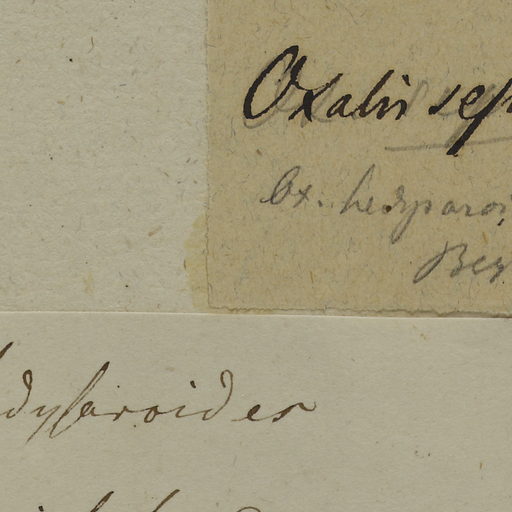 Oxalis sep
Ox. hedysaroi
dysaroides